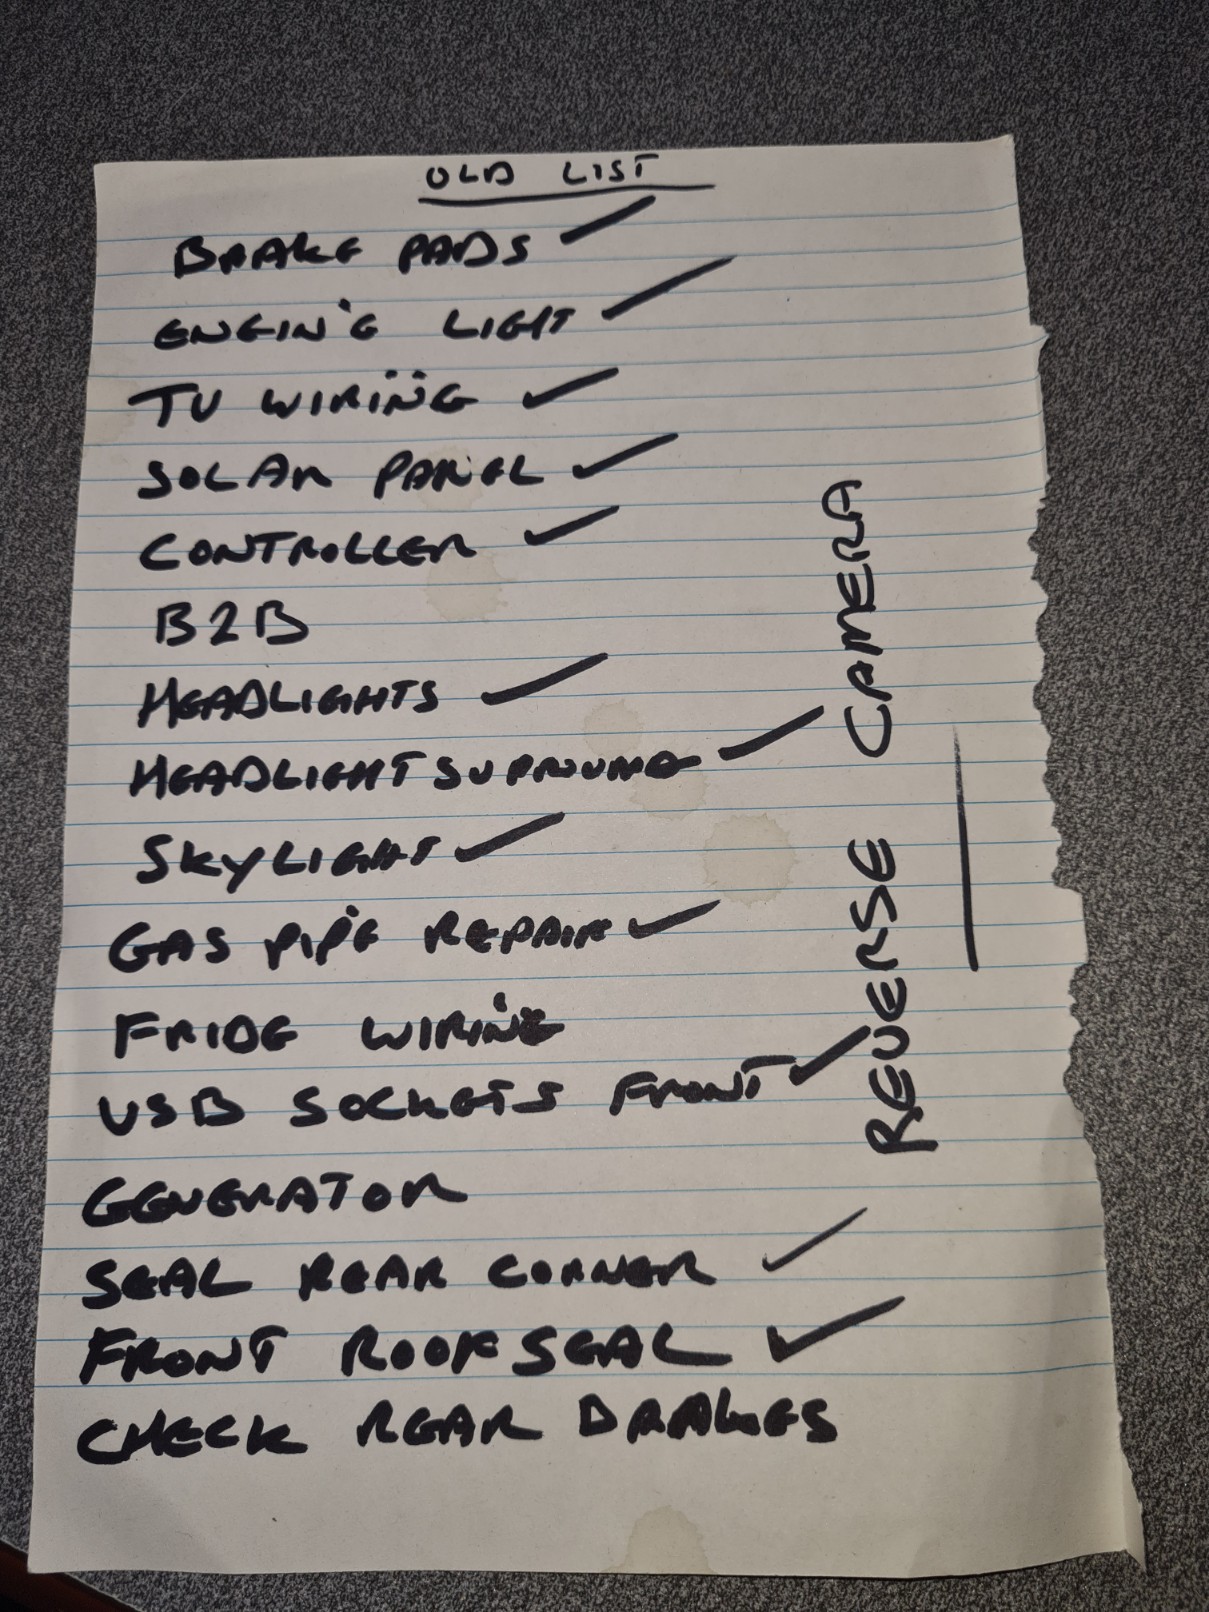 OLD LIST
BRAKE PADS ✓
ENGINE LIGHT ✓
TV WIRING ✓
SOLAR PANEL ✓
CONTROLLER ✓
B2B
HEADLIGHTS ✓
HEADLIGHT SURROUND ✓
SKYLIGHT ✓
GAS PIPE REPAIR ✓
FRIDGE WIRING
USB SOCKETS FRONT ✓
GENERATOR
SEAL REAR CORNER ✓
FRONT ROOF SEAL ✓
CHECK REAR BRAKES
REVERSE CAMERA